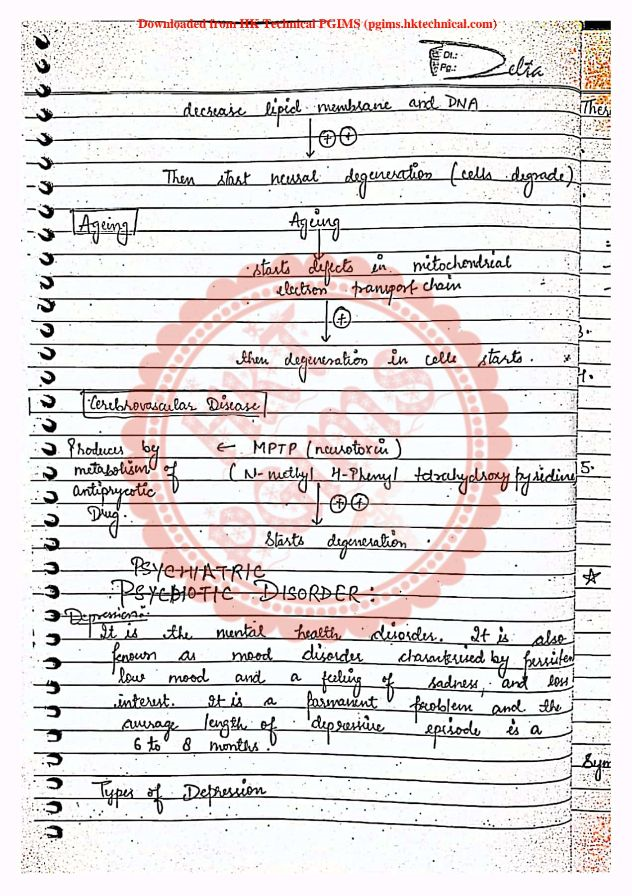 Downloaded from HK Technical PGIMS (pgims.hktechnical.com)
Dt.:
Pg.:
Delta
decrease lipid membrane and DNA
Thes
⊕ ⊕
Then start neural degeneration (cells degrade)
Ageing
Ageing
starts defects in mitochondrial
electron transport chain
⊕
3.
then degeneration in cells starts.
4.
Cerebrovascular Disease
Produces by ← MPTP (neurotoxin)
metabolism of (N-methyl 4-Phenyl tetrahydroxy pyridine
5.
antipsycotic
⊕ ⊕
Drug.
Starts degeneration
PSYCHIATRIC
PSYCHIOTIC DISORDER:
Depression:
It is the mental health disorder. It is also
known as mood disorder characterised by persisten
low mood and a feeling of sadness, and loss
interest. It is a parmanent problem and the
average length of depressive episode is a
6 to 8 months.
Sym
Types of Depression